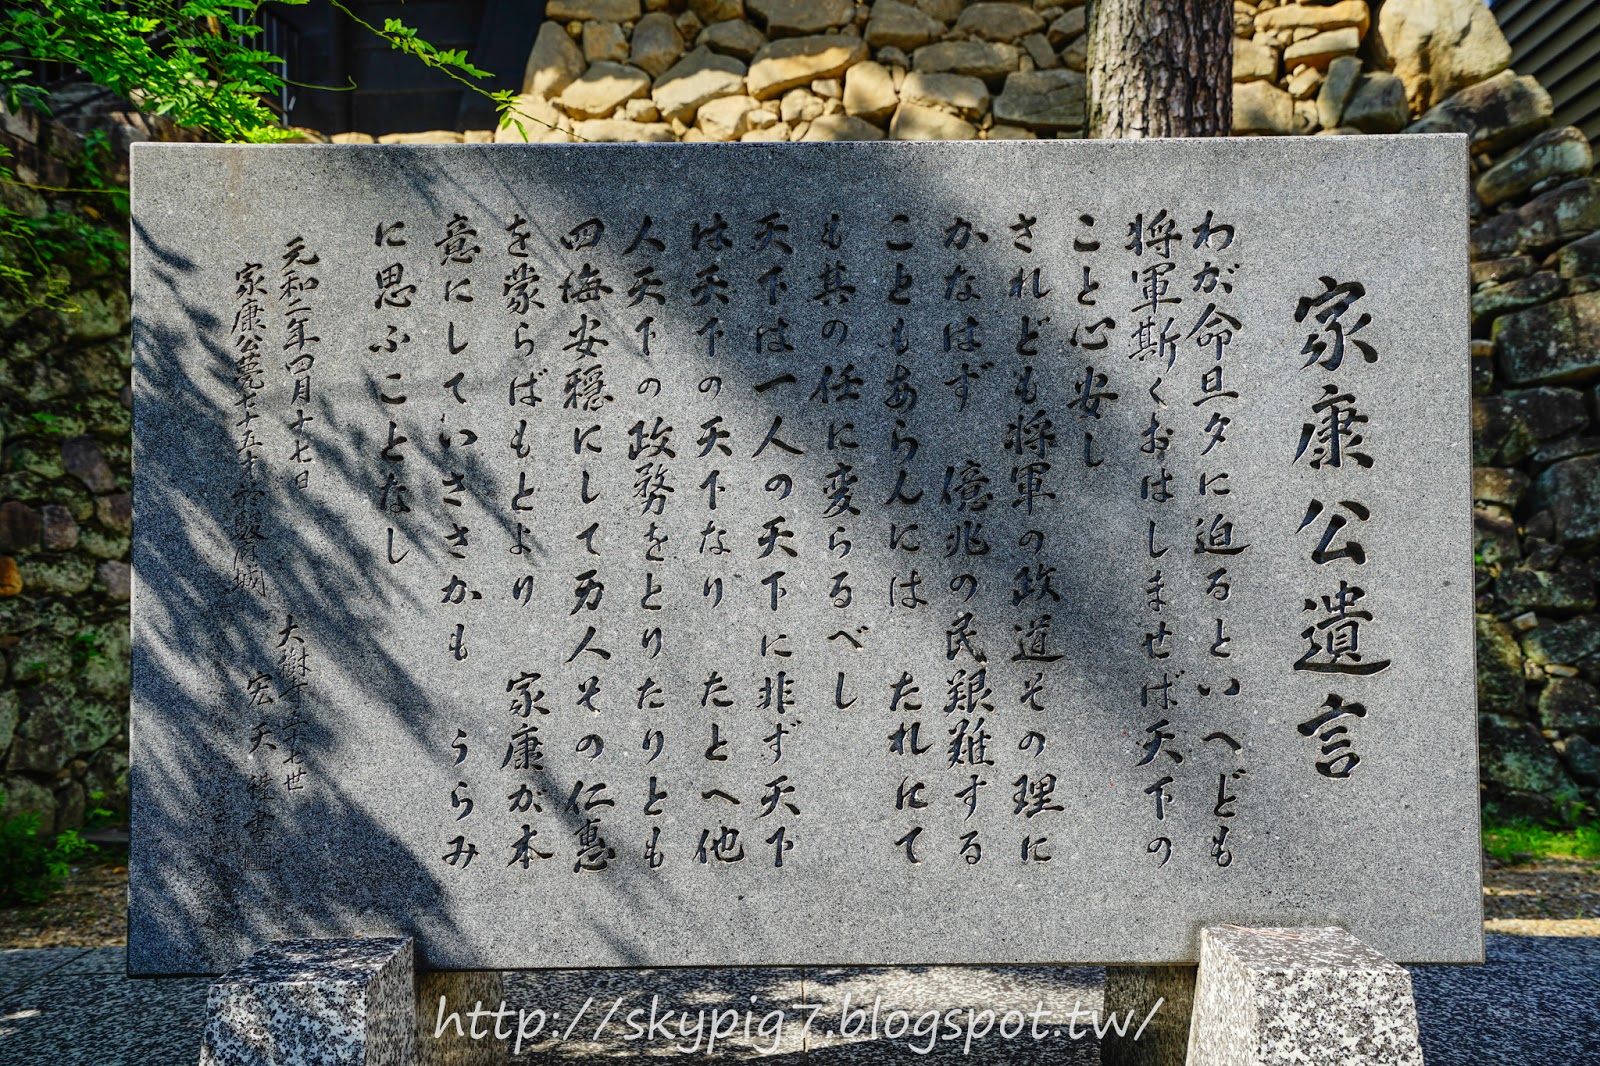 家康公遺言
わが命旦夕に迫るといへども
将軍斯くおはしませば天下の
こと心安し
されども将軍の政道その理に
かなはず 億兆の民艱難する
こともあらんには たれにて
も其の任に変らるべし
天下は一人の天下に非ず天下
は天下の天下なり たとへ他
人天下の政務をとりたりとも
四海安穏にして万人その仁惠
を蒙らばもとより 家康が本
意にしていささかも うらみ
に思ふことなし
元和二年四月十七日 大樹寺五十七世
家康公薨七十五才於駿府城 宏天 書
http://skypig7.blogspot.tw/